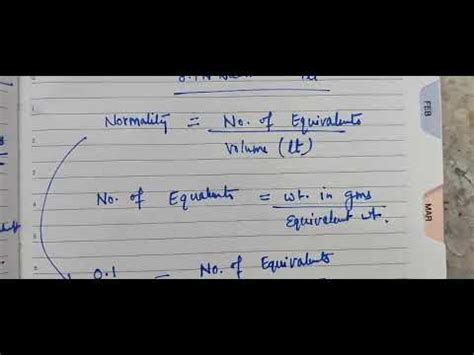 Normality = No. of Equivalents
Volume (lt)
No. of Equalents = wt. in gms
Equivalent wt.
0.1 = No. of Equivalents
FEB
MAR